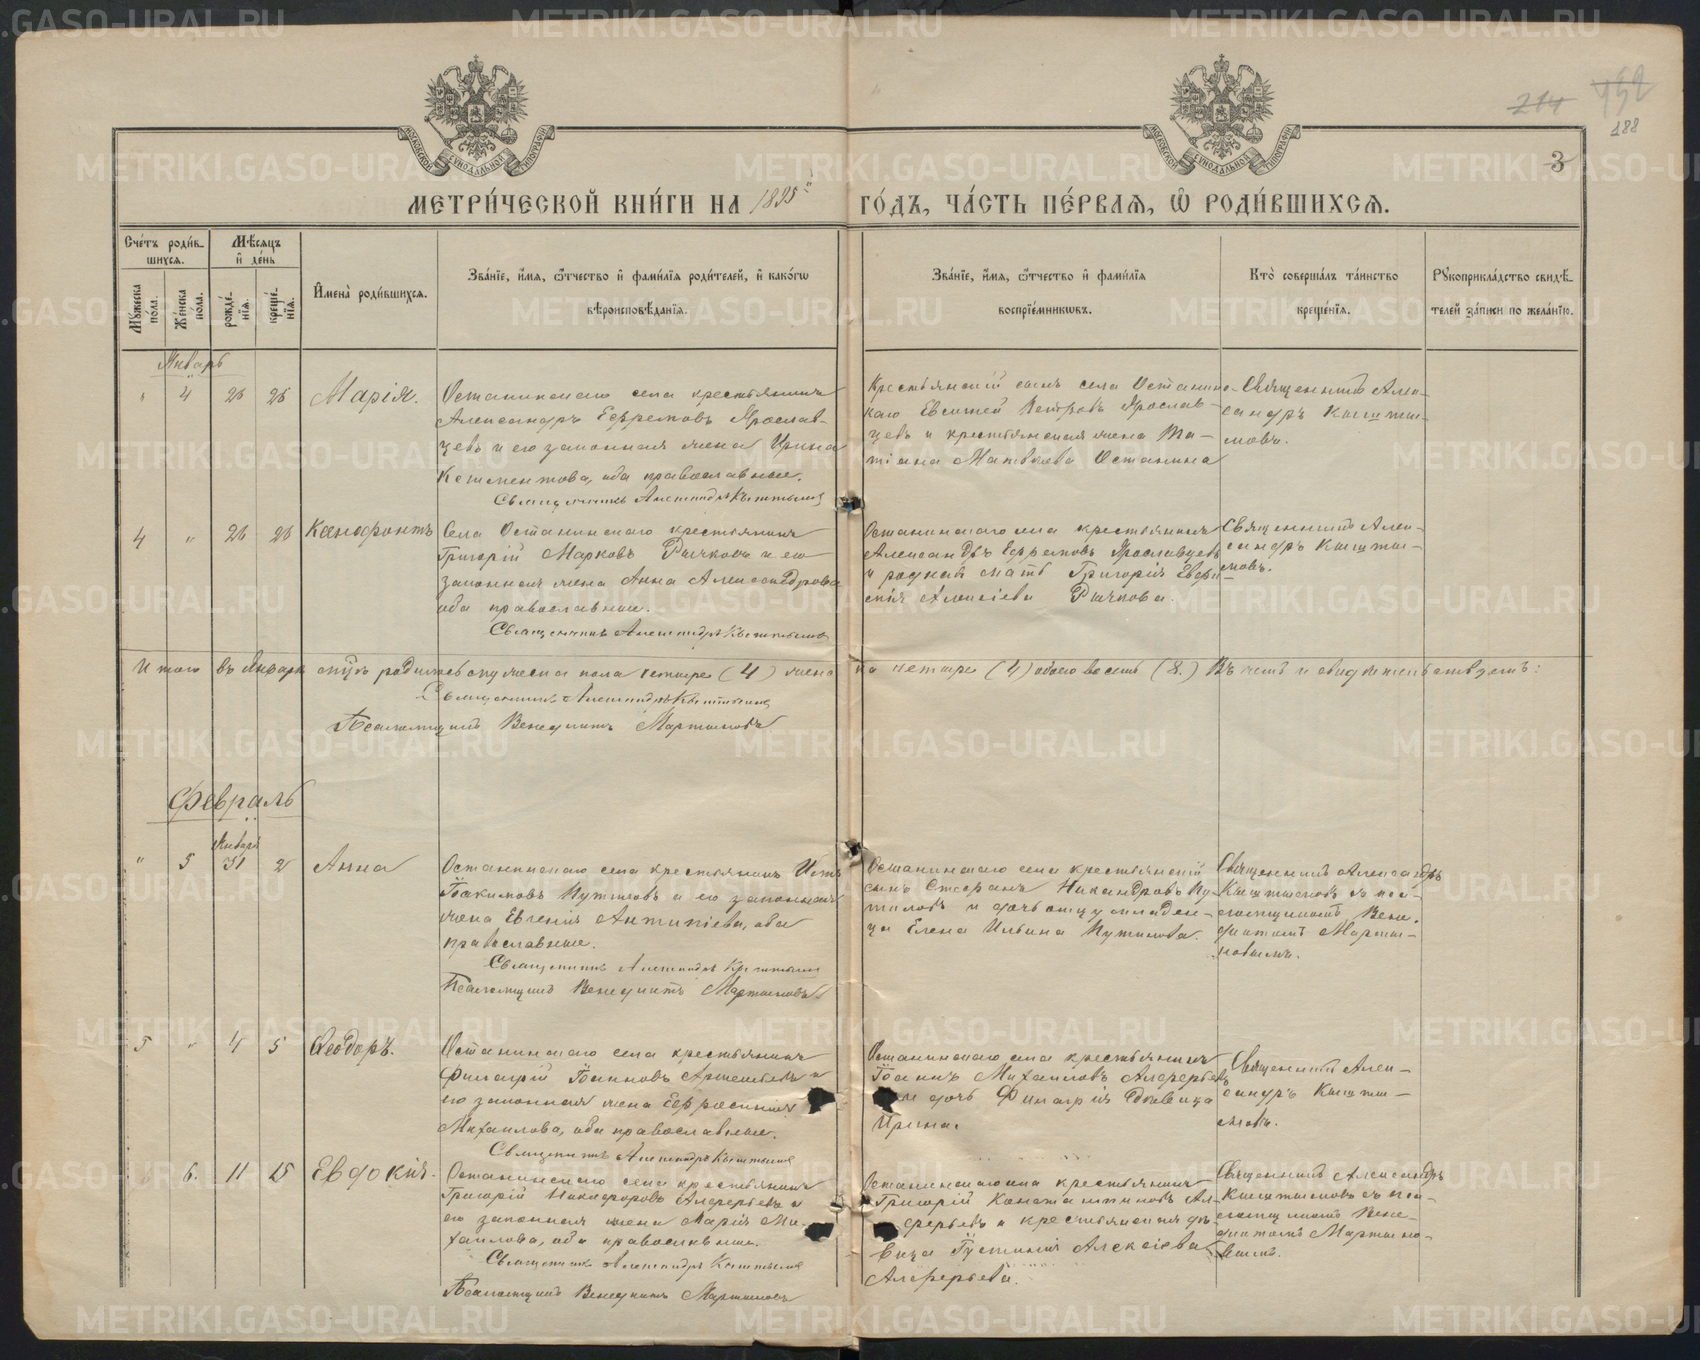 METRIKI.GASO-URAL.RU
214 152
188
МОСКОВСКОЙ СѴНОДАЛЬНОЙ ТИПОГРАФІИ
МОСКОВСКОЙ СѴНОДАЛЬНОЙ ТИПОГРАФІИ
3
МЕТРИ́ЧЕСКОЙ КНИ́ГИ НА 1895й ГО́ДЪ, ЧА́СТЬ ПЕ́РВАѦ, Ѽ РОДИ́ВШИХСѦ.
Сче́тъ роди́вшихсѧ.
Мꙋ́жеска по́ла.
Же́нска по́ла.
Мѣ́сѧцъ и҆ де́нь
рожде́нїѧ.
креще́нїѧ.
И҆мена̀ роди́вшихсѧ.
Зва́нїе, и҆́мѧ, ѻ҆́тчество и҆ фами́лїѧ роди́телей, и҆ како́гѡ
вѣроисповѣ́данїѧ.
Зва́нїе, и҆́мѧ, ѻ҆́тчество и҆ фами́лїѧ
воспрїе́мникѡвъ.
Кто̀ соверша́лъ та́инство
креще́нїѧ.
Рꙋкоприкла́дство свидѣ́-
телей за́писи по жела́нїю.
Январь
" 4 26 26 Марія.
Останинскаго села крестьянинъ
Александръ Ефремовъ Ярослав-
цевъ и его законная жена Ирина
Климентова, оба православные.
Священникъ Александръ Кыштымовъ
Крестьянскій сынъ села Останин-
скаго Евсигней Петровъ Ярослав-
цевъ и крестьянская жена Та-
тіана Матвѣева Останина
Священникъ Алек-
сандръ Кышты-
мовъ.
4 " 26 26 Ксенофонтъ
Села Останинскаго крестьянинъ
Григорій Марковъ Рычковъ и его
законная жена Анна Александрова
оба православные.
Священникъ Александръ Кыштымовъ
Останинскаго села крестьянинъ
Александръ Ефремовъ Ярославцевъ
и родная мать Григорія Евфи-
мія Алексіева Рычкова.
Священникъ Алек-
сандръ Кышты-
мовъ.
Итого въ Январѣ родилось мужеска пола четыре (4) женска четыре (4) обоего восемь (8.) Въ чемъ и свидѣтельствуемъ:
Священникъ Александръ Кыштымовъ
Псаломщикъ Венедиктъ Мартыновъ
Февраль
Январь
" 5 31 2 Анна
Останинскаго села крестьянинъ
Іоакимовъ Путиловъ и его законная
жена Евгенія Антипіева, оба
православные.
Священникъ Александръ Кыштымовъ
Псаломщикъ Венедиктъ Мартыновъ
Останинскаго села крестьянскій
сынъ Стефанъ Никандровъ Пу-
тиловъ и дочь отцу младен-
ца Елена Ильина Путилова.
Священникъ Александръ
Кыштымовъ съ пса-
ломщикомъ Вене-
диктомъ Марты-
новымъ.
5 " 4 5 Ѳеодоръ.
Останинскаго села крестьянинъ
Іоанновъ и
его законная жена Евфросинія
Михаилова, оба православные.
Священникъ Александръ Кыштымовъ
Останинскаго села крестьянинъ
Іоаннъ Михаиловъ Алферьевъ
дочь дѣвица
Ирина.
Священникъ Алек-
сандръ Кышты-
мовъ.
6. 11 15 Евдокія.
Останинскаго села крестьянинъ
Григорій Никифоровъ Алферьевъ и
его законная жена Марія Ми-
хаилова, оба православные.
Священникъ Александръ Кыштымовъ
Псаломщикъ Венедиктъ Мартыновъ
Останинскаго села крестьянинъ
Григорій Константиновъ Ал-
ферьевъ и крестьянская дѣ-
вица Іустинія Алексіева
Алферьева.
Священникъ Александръ
Кыштымовъ съ пса-
ломщикомъ Вене-
диктомъ Мартыно-
вымъ.